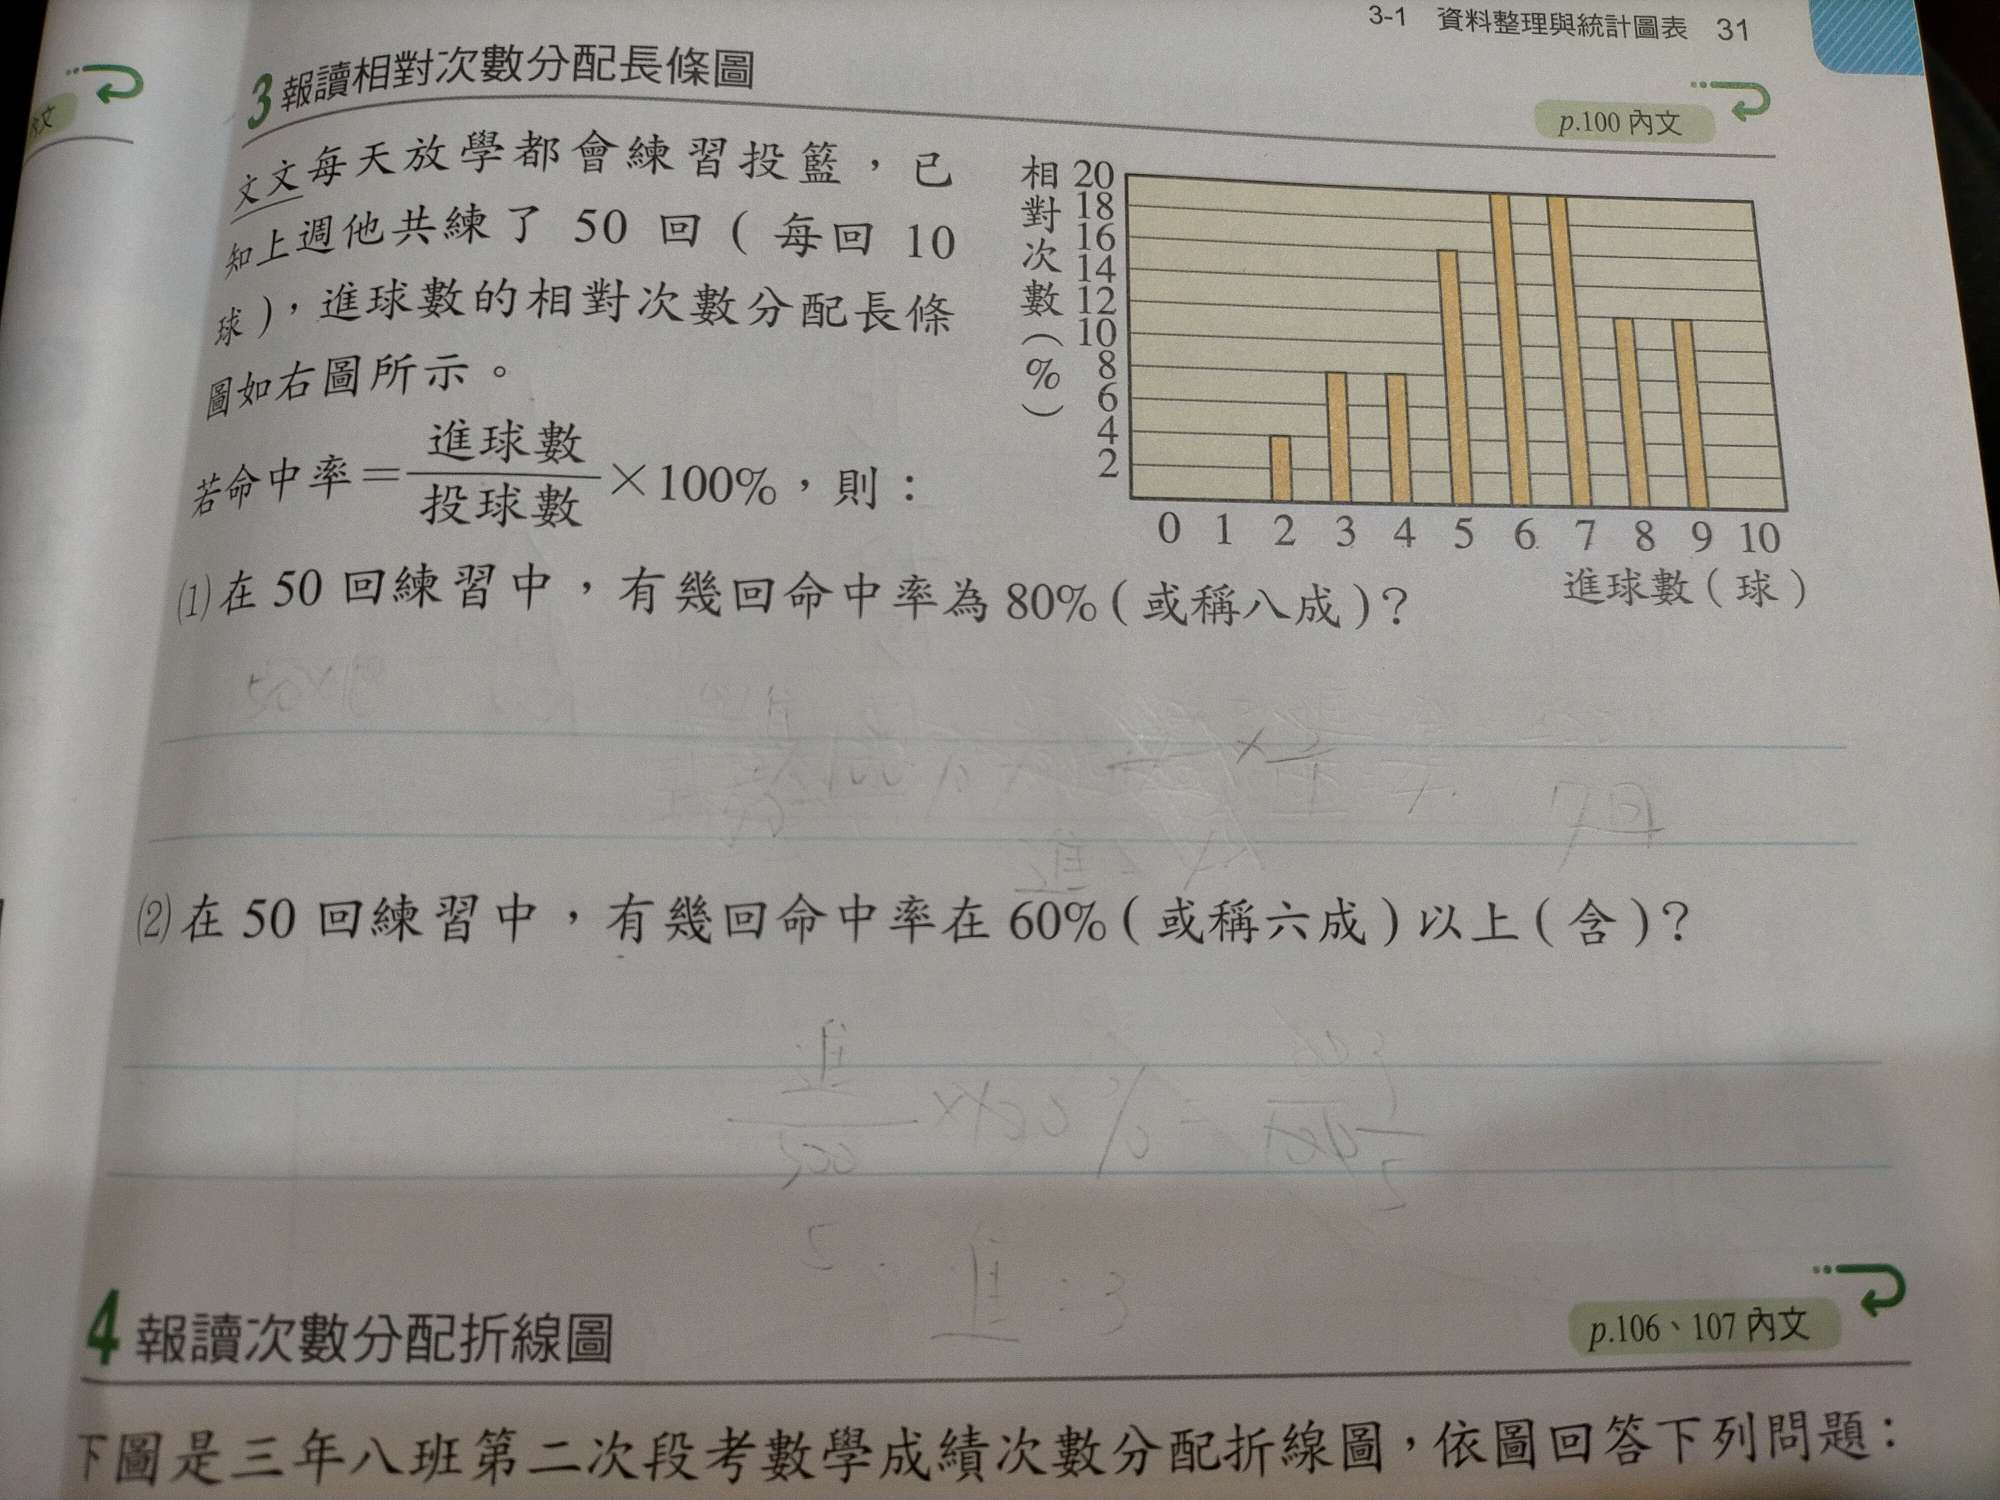 3-1 資料整理與統計圖表 31
3 報讀相對次數分配長條圖
p.100 內文
內文
文文每天放學都會練習投籃，已
知上週他共練了 50 回（每回 10
球），進球數的相對次數分配長條
圖如右圖所示。
若命中率＝進球數/投球數×100%，則：
相對次數（%）
20
18
16
14
12
10
8
6
4
2
0 1 2 3 4 5 6 7 8 9 10
進球數（球）
⑴在 50 回練習中，有幾回命中率為 80%（或稱八成）？
⑵在 50 回練習中，有幾回命中率在 60%（或稱六成）以上（含）？
4 報讀次數分配折線圖
p.106、107 內文
下圖是三年八班第二次段考數學成績次數分配折線圖，依圖回答下列問題：